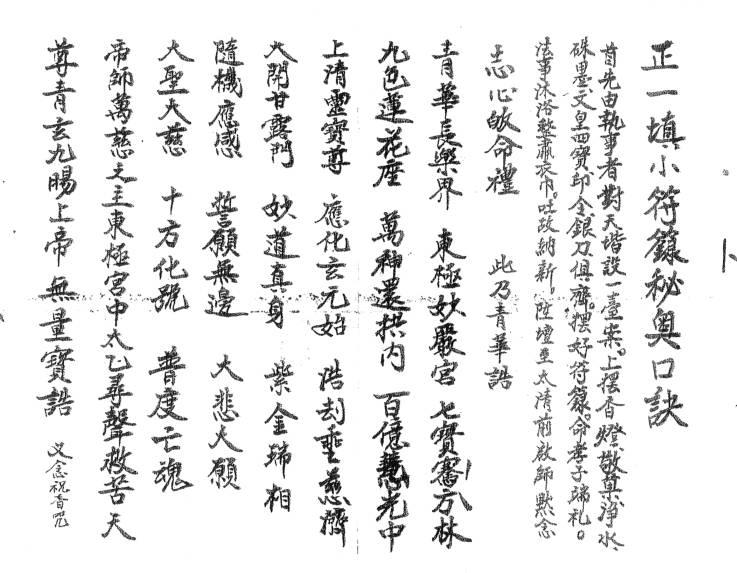 正一填小符籙秘奧口訣
首先由執事者對天堦設一臺案。上擺香燈敬菓淨水、
硃墨文皇四寶印令銀刀俱齊。擺好符籙。命孝子端礼。
法事沐浴整肅衣巾。吐故納新，陞壇至太清前啟師默念
志心皈命禮 此乃青華誥
青華長樂界 東極妙嚴宮 七寶騫方林
九色蓮花座 萬神還拱內 百億慧光中
上清靈寶尊 應化玄元始 浩刧垂慈濟
大開甘露門 妙道真身 紫金瑞相
隨機應感 誓願無邊 大悲大願
大聖大慈 十方化號 普度亡魂
帝師萬慈之主東極宮中太乙尋聲救苦天
尊青玄九暘上帝 無量寶誥 又念祝香咒